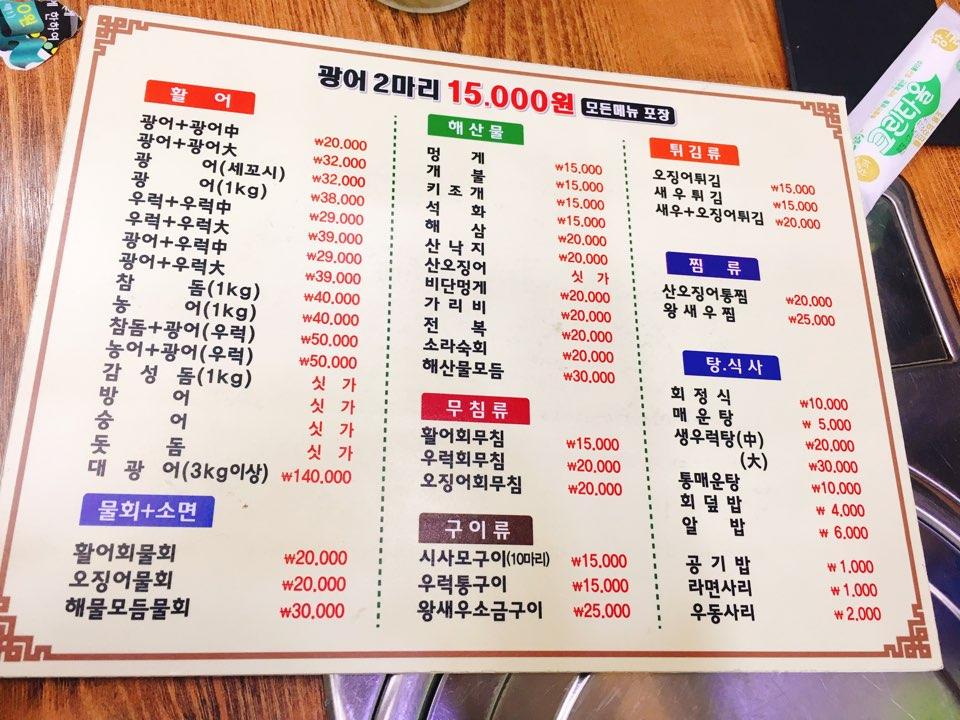 게 한하여
0원
크린타올
광어 2마리 15.000원 모든메뉴 포장
활 어
광어+광어中 ₩20.000
광어+광어大 ₩32.000
광 어(세꼬시) ₩32.000
광 어(1kg) ₩38.000
우럭+우럭中 ₩29.000
우럭+우럭大 ₩39.000
광어+우럭中 ₩29.000
광어+우럭大 ₩39.000
참 돔(1kg) ₩40.000
농 어(1kg) ₩40.000
참돔+광어(우럭) ₩50.000
농어+광어(우럭) ₩50.000
감 성 돔(1kg) 싯 가
방 어 싯 가
숭 어 싯 가
돗 돔 싯 가
대 광 어(3kg이상) ₩140.000
물회+소면
활어회물회 ₩20.000
오징어물회 ₩20.000
해물모듬물회 ₩30.000
해산물
멍 게 ₩15.000
개 불 ₩15.000
키 조 개 ₩15.000
석 화 ₩15.000
해 삼 ₩20.000
산 낙 지 ₩20.000
산오징어 싯 가
비단멍게 ₩20.000
가 리 비 ₩20.000
전 복 ₩20.000
소라숙회 ₩20.000
해산물모듬 ₩30.000
무침류
활어회무침 ₩15.000
우럭회무침 ₩20.000
오징어회무침 ₩20.000
구이류
시사모구이(10마리) ₩15.000
우럭통구이 ₩15.000
왕새우소금구이 ₩25.000
튀김류
오징어튀김 ₩15.000
새 우 튀 김 ₩15.000
새우+오징어튀김 ₩20.000
찜 류
산오징어통찜 ₩20.000
왕 새 우 찜 ₩25.000
탕.식 사
회 정 식 ₩10.000
매 운 탕 ₩ 5.000
생우럭탕(中) ₩20.000
(大) ₩30.000
통매운탕 ₩10.000
회 덮 밥 ₩ 4.000
알 밥 ₩ 6.000
공 기 밥 ₩1.000
라면사리 ₩1.000
우동사리 ₩2.000